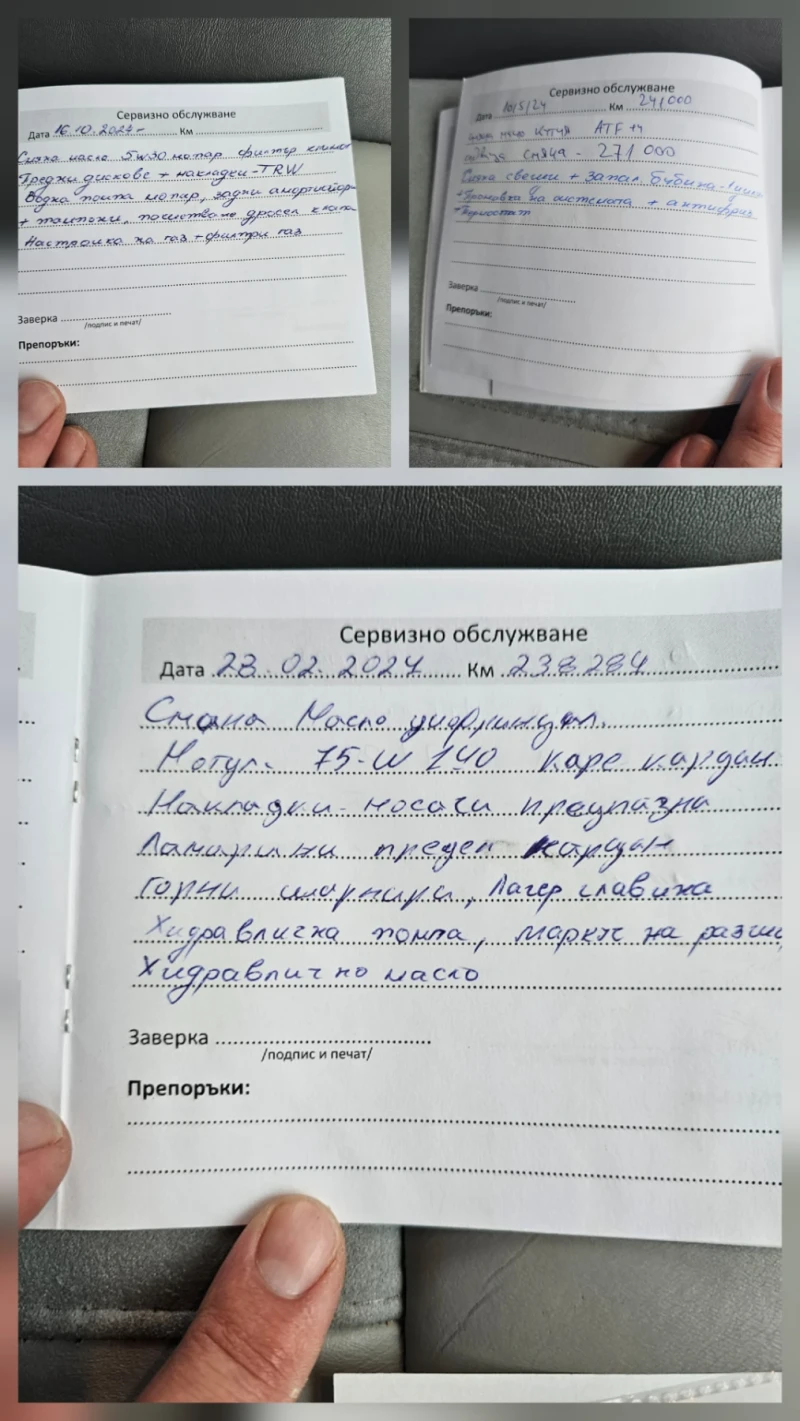 Сервизно обслужване
Дата 16.10.2024- Км
Смяна масло 5w30 мотор филтър климат
Предни дискове + накладки - TRW
Водна помпа мотор, задни амортисьори
+ тампони, почистване дросел клапа
Настройка на газ + филтри газ
Заверка
/подпис и печат/
Препоръки:
Сервизно обслужване
Дата 10/5/24 Км 241000
кутия ATF +4
смяна - 271 000
Смяна свещи + запал. бобина -
+ Промивка на системата + антифриз
+ Термостат
Заверка
/подпис и печат/
Препоръки:
Сервизно обслужване
Дата 28.02.2024 Км 238284
Смяна Масло
Мотул. 75-W 140 каре кардан
Накладки - носачи предпазна
Ламарини преден кардан
Горни шарнири, Лагер главина
Хидравлична помпа, маркуч на
Хидравлично масло
Заверка
/подпис и печат/
Препоръки: